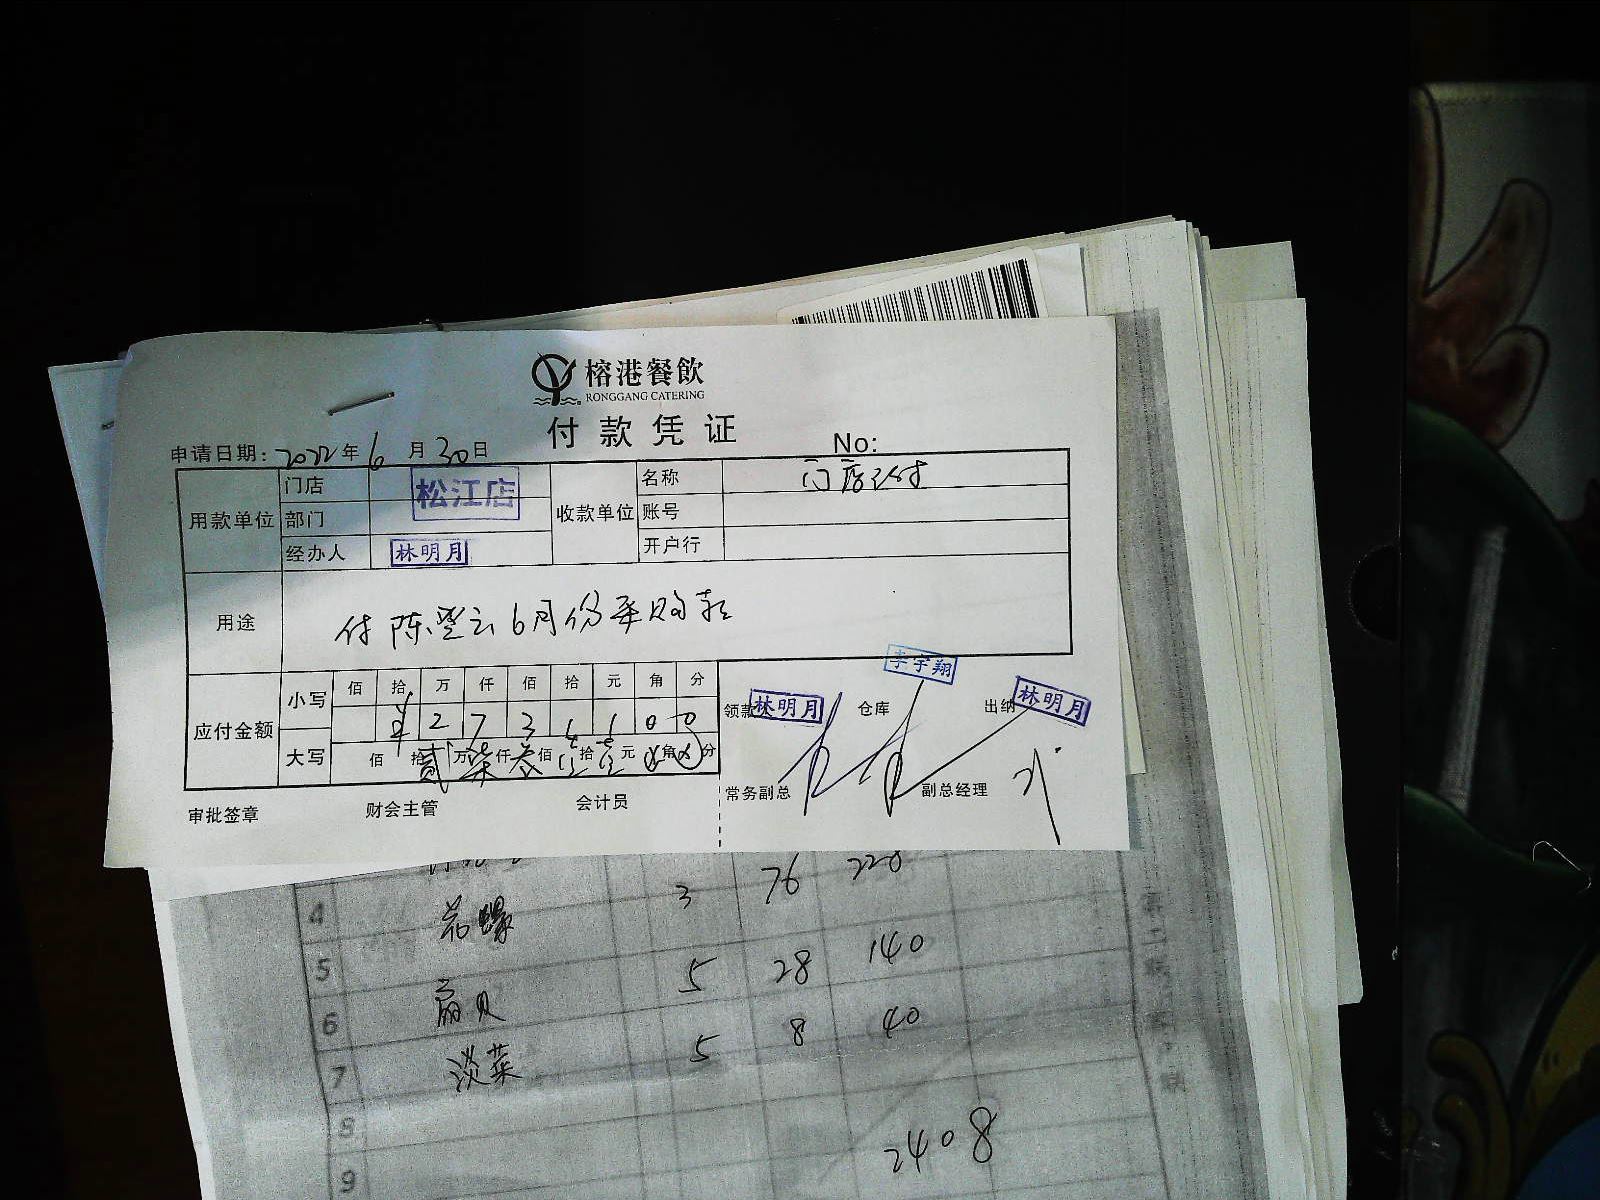 榕港餐飲
RONGGANG CATERING
付款凭证
申请日期: 2022年6月30日 No:
用款单位 门店 松江店 收款单位 名称 门店已付
部门 账号
经办人 林明月 开户行
用途 付陈登云6月份采购款
应付金额 小写 佰 拾 万 仟 佰 拾 元 角 分
¥ 2 7 3 1 1 0 0
大写 佰 拾 贰万柒仟叁佰壹拾壹元 角 分
领款 林明月 仓库 李宇翔 出纳 林明月
常务副总 副总经理
审批签章 财会主管 会计员
4 花螺 3 76 228
5 扇贝 5 28 140
6 淡菜 5 8 40
7
8 2408
9